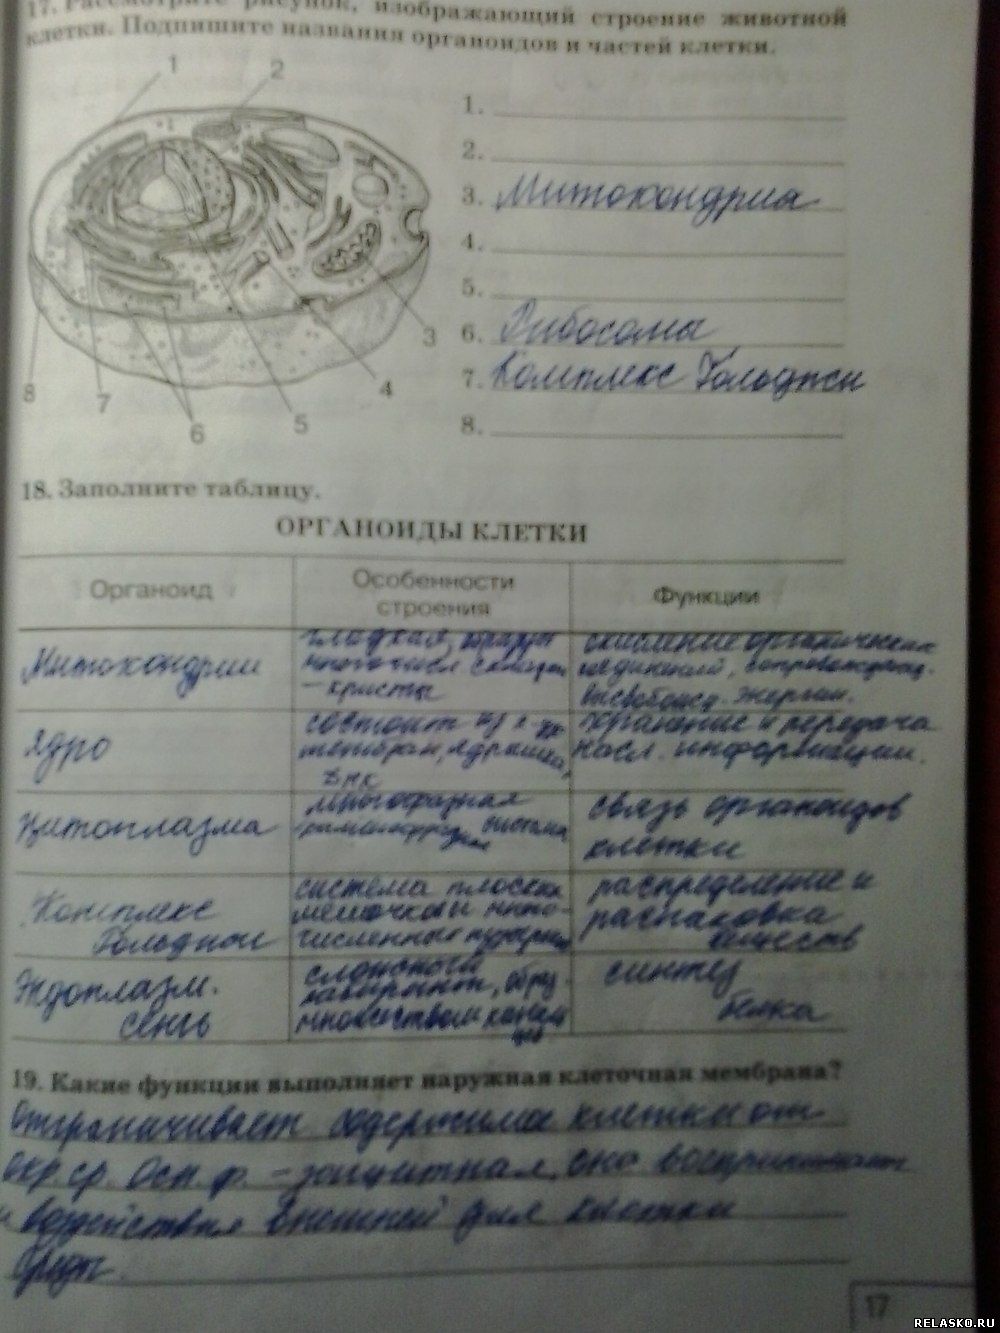 17. Рассмотрите рисунок, изображающий строение животной
клетки. Подпишите названия органоидов и частей клетки.
1
2
3
4
5
6
7
8
1.
2.
3. Митохондриа
4.
5.
6. Рибосомы
7. Комплекс Гольджи
8.
18. Заполните таблицу.
ОРГАНОИДЫ КЛЕТКИ
Органоид
Особенности
строения
Функции
Митохондрии
гладкая,
складок
- кристы
окисление органических
соединений,
энергии.
Ядро
состоит из
мембран, ядрышка,
ДНК
хранение и передача
насл. информации.
Цитоплазма
многофазная
система
связь органоидов
клетки
Комплекс
Гольджи
система плоских
мешочков и много-
численных
распределение и
распаковка
веществ
Эндоплазм.
сеть
сложной
лабиринт, обр.
множеством
синтез
белка
19. Какие функции выполняет наружная клеточная мембрана?
Отграничивает содержимое клетки от
окр. ср. осн. ф. - защитная, она воспринимает
и воздействия внешней для клетки
среды.
17
RELASKO.RU